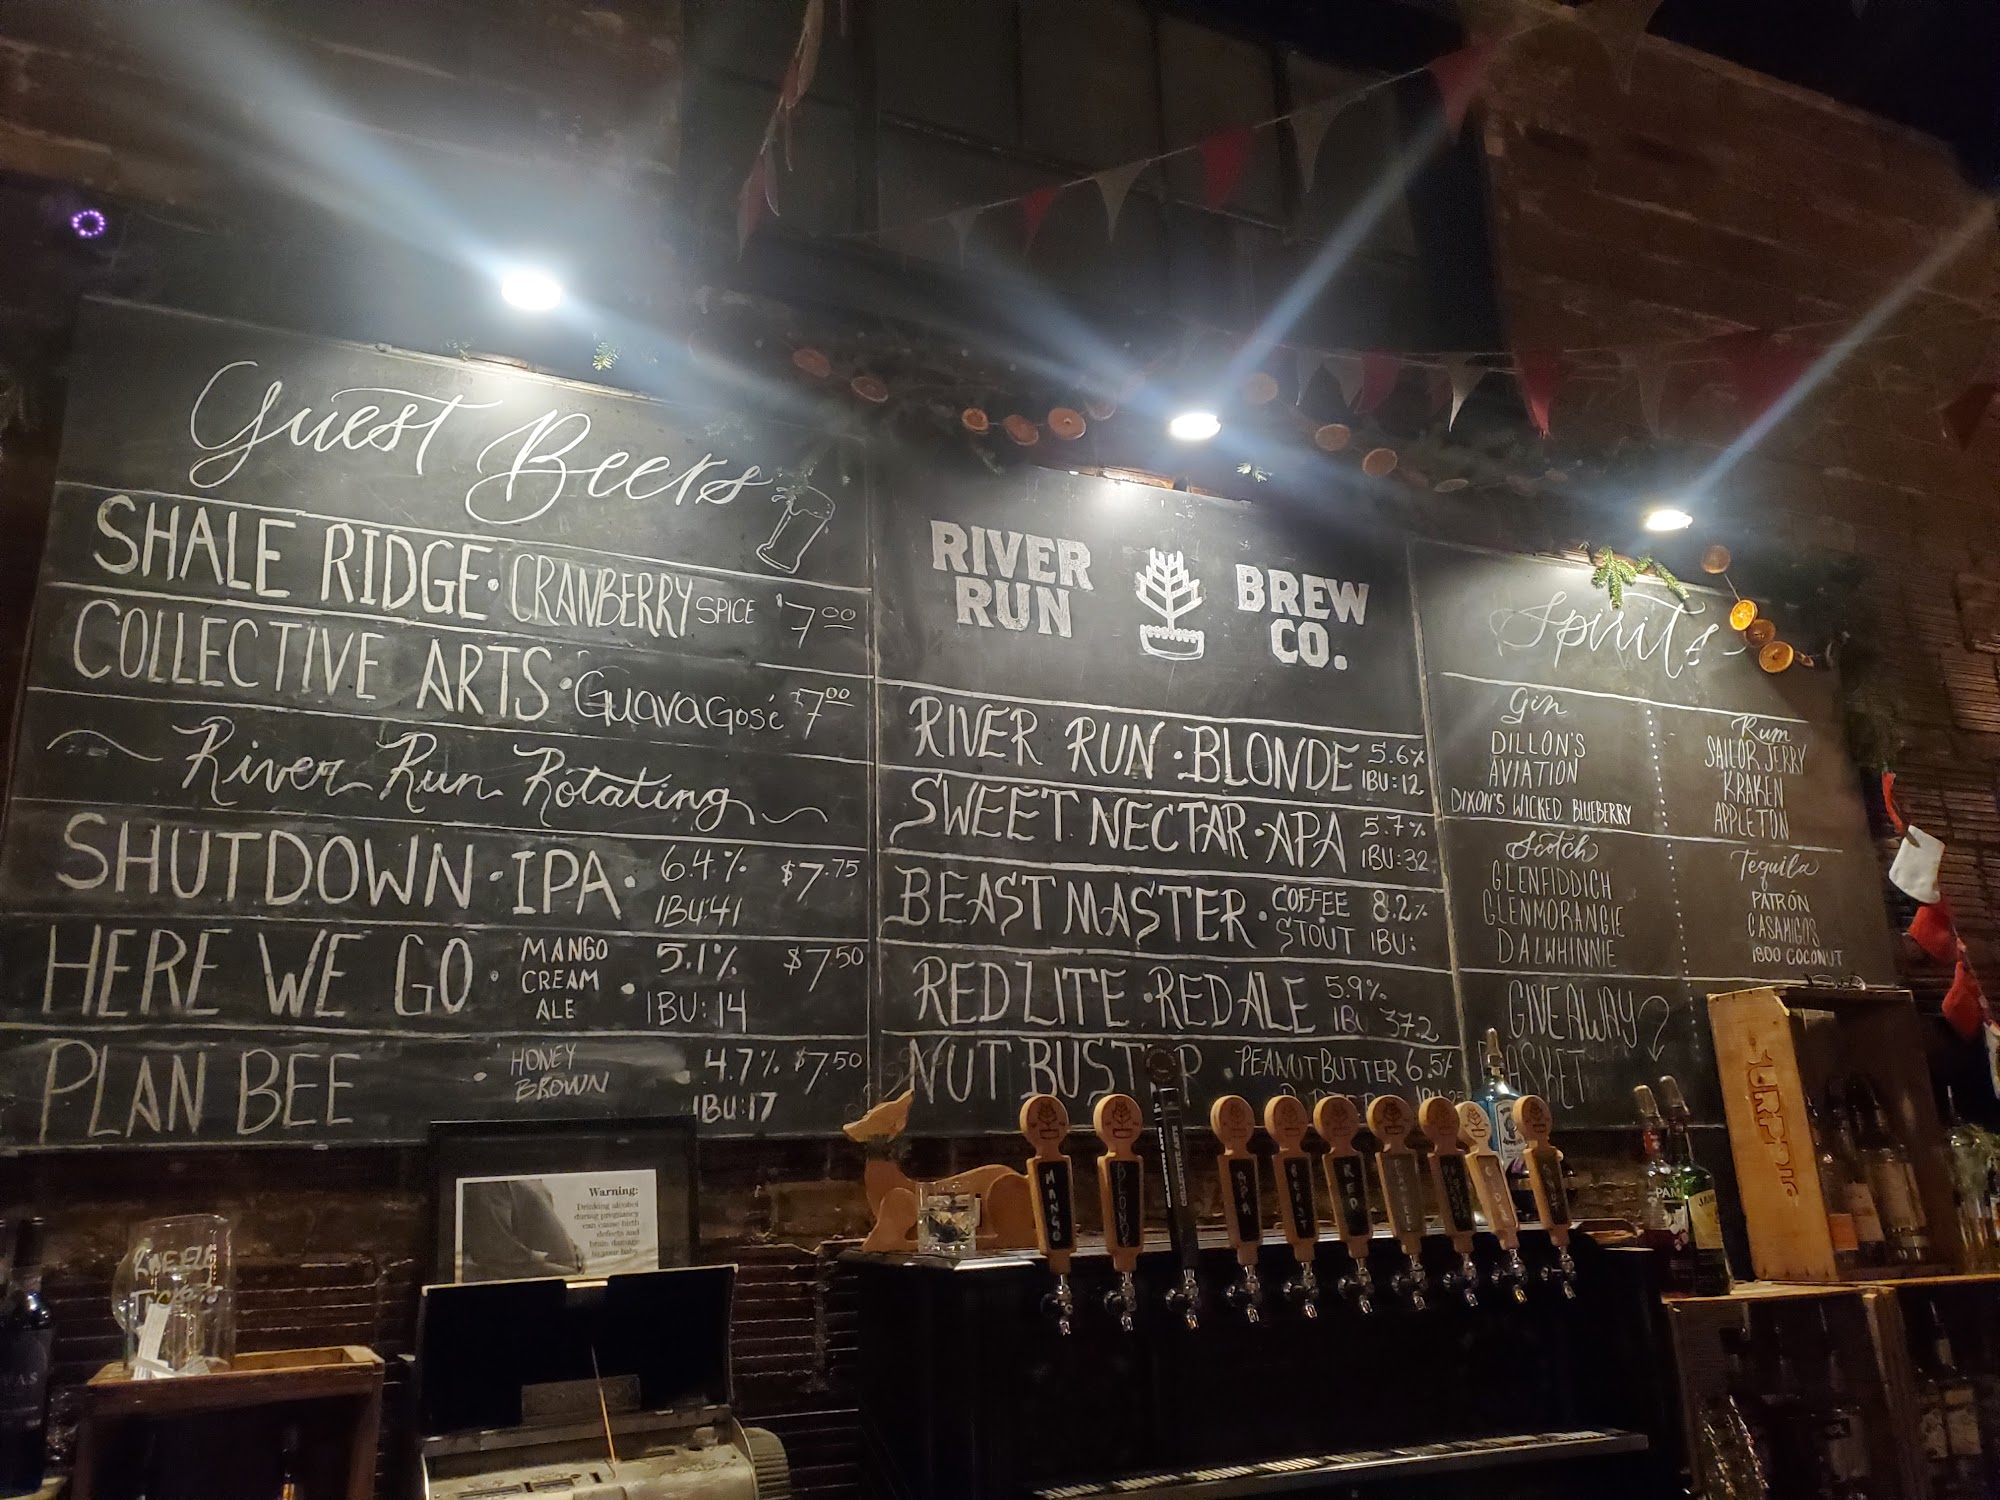 Guest Beers
SHALE RIDGE · CRANBERRY SPICE $7.00
COLLECTIVE ARTS · GUAVA GOSÉ $7.00
~ River Run Rotating ~
SHUTDOWN · IPA · 6.4% IBU:41 $7.75
HERE WE GO · MANGO CREAM ALE · 5.1% IBU:14 $7.50
PLAN BEE · HONEY BROWN · 4.7% IBU:17 $7.50
RIVER RUN BREW CO.
RIVER RUN · BLONDE 5.6% IBU:12
SWEET NECTAR · APA 5.7% IBU:32
BEAST MASTER · COFFEE STOUT 8.2% IBU:
RED LITE · RED ALE 5.9% IBU 37.2
NUT BUSTER · PEANUT BUTTER 6.5%
Spirits
Gin
DILLON'S
AVIATION
DIXON'S WICKED BLUEBERRY
Scotch
GLENFIDDICH
GLENMORANGIE
DALWHINNIE
GIVEAWAY
BASKET
Rum
SAILOR JERRY
KRAKEN
APPLETON
Tequila
PATRÓN
CASAMIGOS
1800 COCONUT
Warning:
Drinking alcohol
during pregnancy
can cause birth
defects and
brain damage
to your baby
MANGO
BLONDE
APA
BEAST
RED